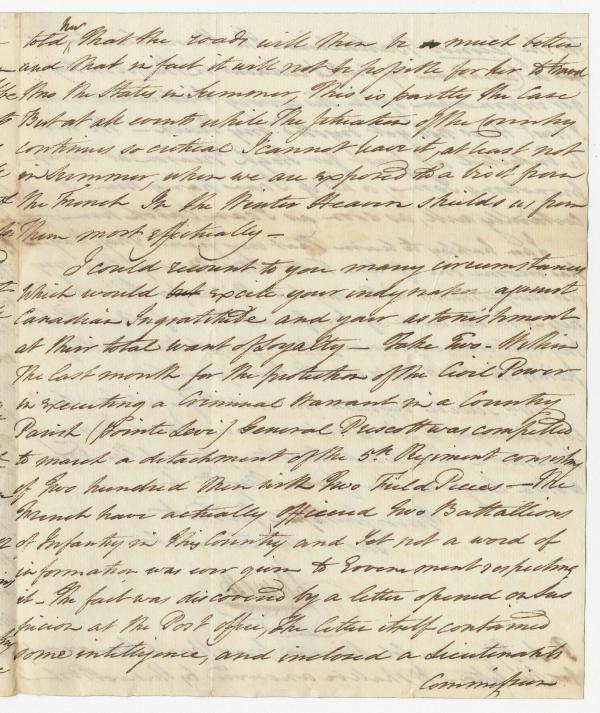 told her That the roads will then be much better
and that in fact it will not be possible for her to travel
thro the States in Summer, This is partly the Case
But at all events while The situation of the Country
continues so critical I cannot leave it, at least not
in Summer, when we are exposed to a visit from
the French In the Winter Heaven shields us from
Them most effectually —
I could recount to you many circumstances
which would but excite your indignation against
Canadian Ingratitude and your astonishment
at their total want of Loyalty — Take Two — Within
The last month for the protection of the Civil Power
in executing a Criminal Warrant in a Country
Parish (Pointe Levi) General Prescott was compelled
to march a detachment of the 5th Regiment consisting
of Two hundred Men with Two Field Pieces — The
French have actually officered Two Battallions
of Infantry in This Country and Yet not a word of
information was ever given to Government respecting
it — The fact was discovered by a letter opened on Sus
picion at the Post office, The letter itself contained
some intelligence, and inclosed a Lieutenants
Commission